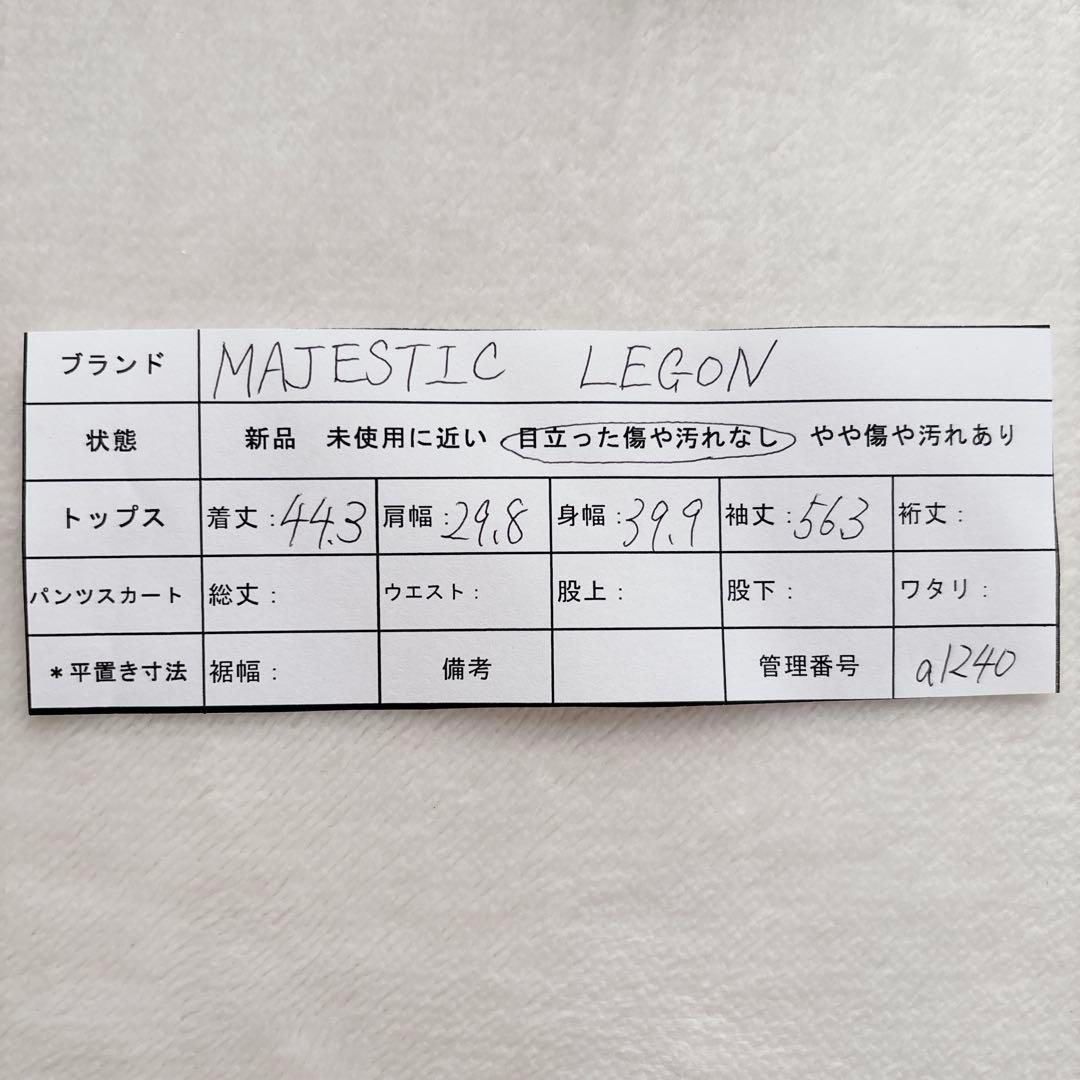 ブランド MAJESTIC LEGON
状態 新品 未使用に近い 目立った傷や汚れなし やや傷や汚れあり
トップス 着丈:44.3 肩幅:29.8 身幅:39.9 袖丈:56.3 裄丈:
パンツスカート 総丈: ウエスト: 股上: 股下: ワタリ:
*平置き寸法 裾幅: 備考 管理番号 a1240